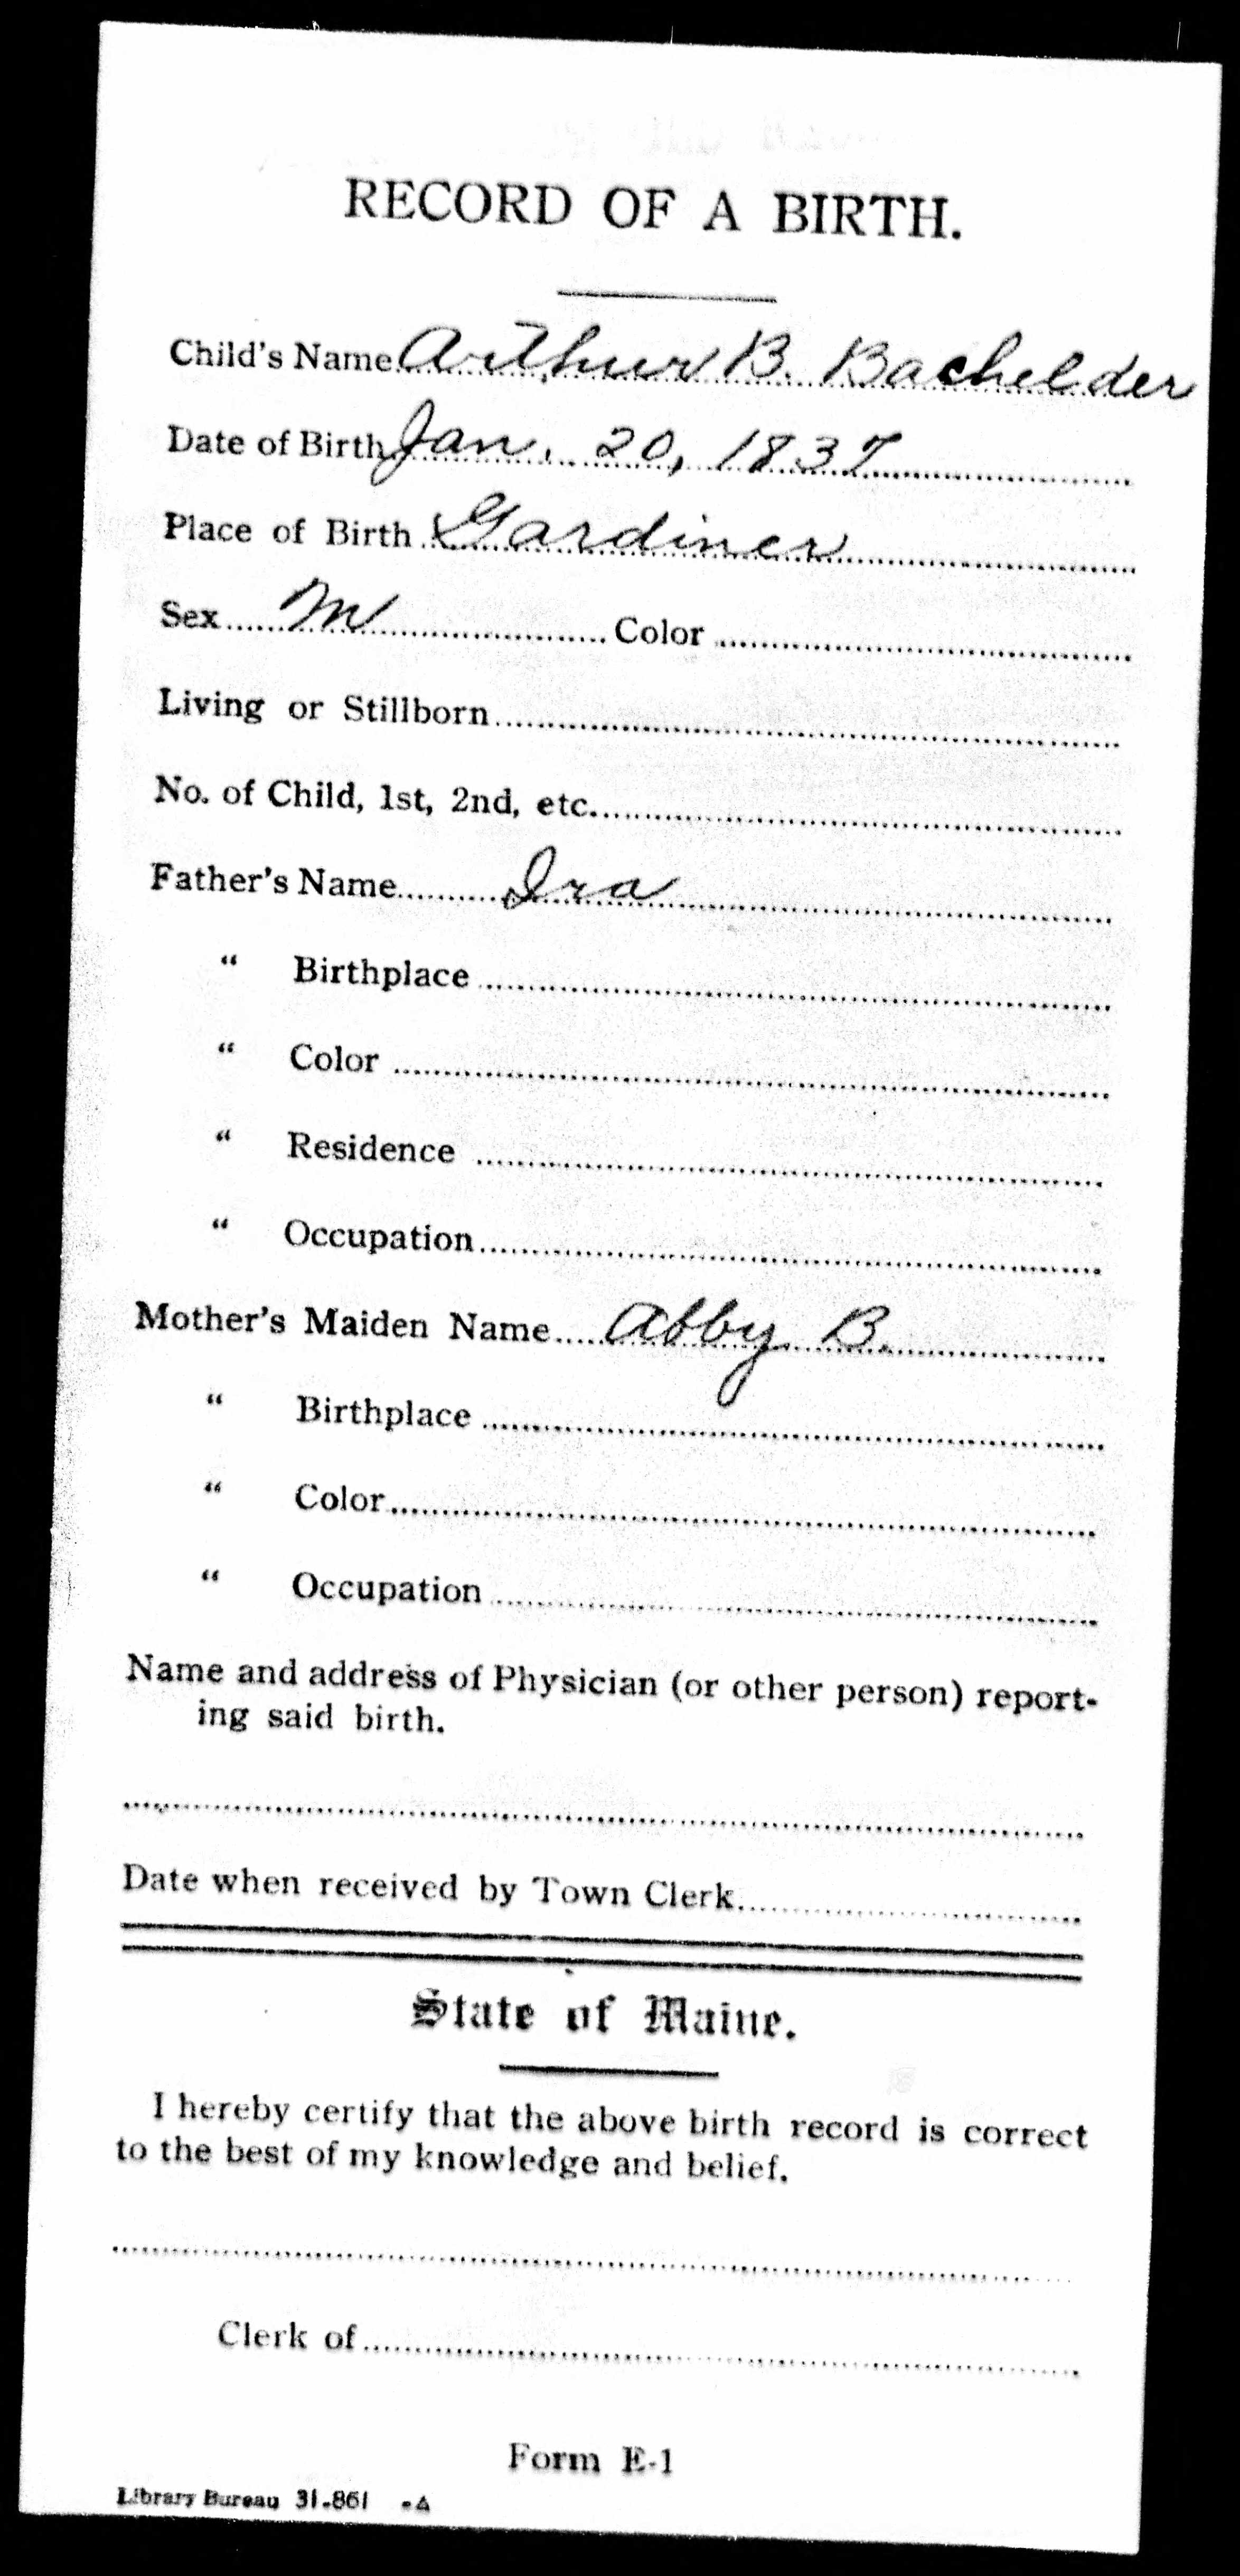 RECORD OF A BIRTH.
Child's Name Arthur B. Bachelder
Date of Birth Jan. 20, 1837
Place of Birth Gardiner
Sex M Color
Living or Stillborn
No. of Child, 1st, 2nd, etc.
Father's Name Ira
" Birthplace
" Color
" Residence
" Occupation
Mother's Maiden Name Abby B.
" Birthplace
" Color
" Occupation
Name and address of Physician (or other person) report-
ing said birth.
Date when received by Town Clerk
State of Maine.
I hereby certify that the above birth record is correct
to the best of my knowledge and belief.
Clerk of
Form E-1
Library Bureau 31-861 -A